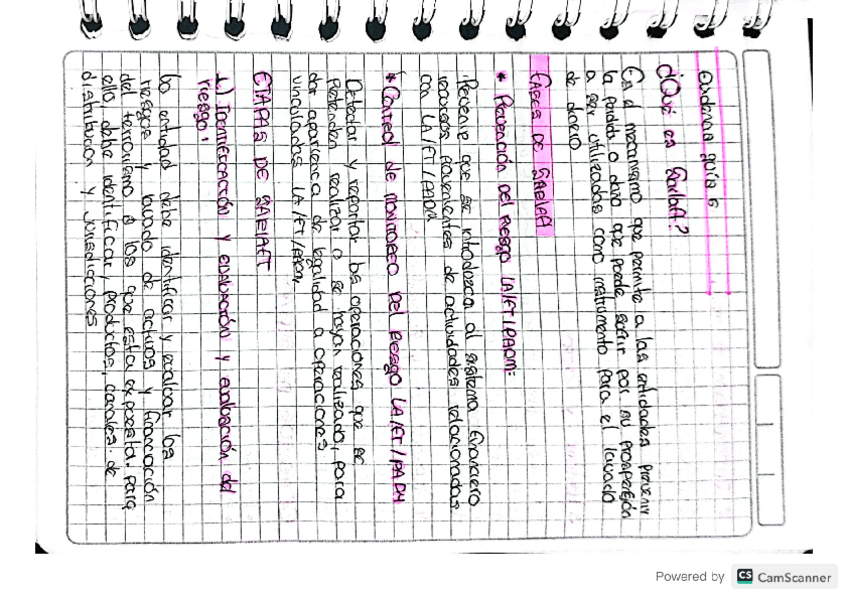 Evidencia guía 5
¿Qué es Sarlaft?
Es el mecanismo que permite a las entidades prevenir
la perdida o daño que puede sufrir por su propensión
a ser utilizadas como instrumento para el lavado
de dinero
Fases de Sarlaft
* Prevención del riesgo LA/FT/PADM:
Prevenir que se introduzca al sistema financiero
recursos provenientes de actividades relacionadas
con LA/FT/PADM
* Control de monitoreo del riesgo LA/FT/PADM
Detectar y reportar las operaciones que se
pretendan realizar o se hayan realizado, para
dar apariencia de legalidad a operaciones
vinculadas LA/FT/PADM,
ETAPAS DE SARLAFT
1.) Identificación y evaluación y evaluación del
riesgo:
La entidad debe identificar y evaluar los
riesgos y lavado de activos y financiación
del terrorismo a los que esta expuesta. para
ello, debe identificar, productos, canales. de
distribución y jurisdicciones
Powered by CS CamScanner